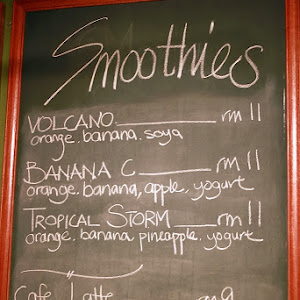 Smoothies
VOLCANO rm 11
orange. banana. soya
BANANA C rm 11
orange, banana, apple, yogurt
TROPICAL STORM rm 11
orange, banana, pineapple, yogurt
Cafe Latte rm 9